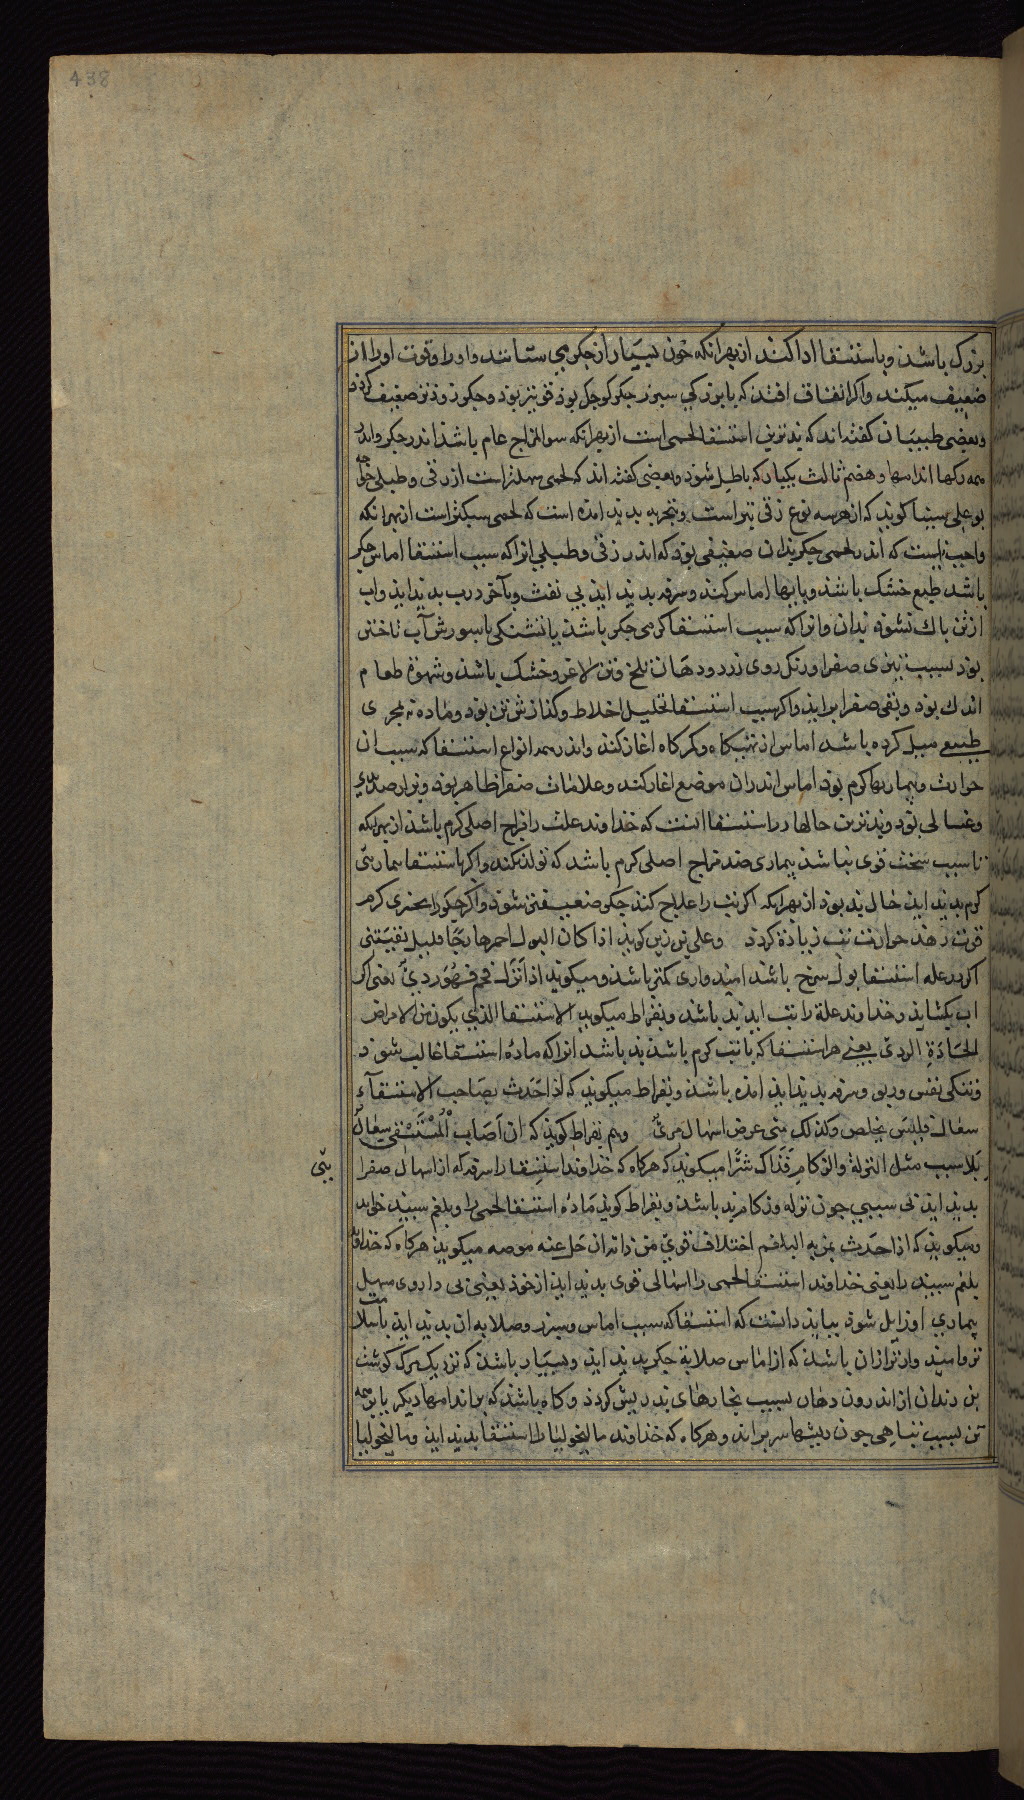 438
بزرک باشذ و باستسقا ادا کند از بهر آنکه خون بسیار از جکر می ستاند و او را و قوت او را از
ضعیف میکند و اکر اتفاق افتد که با بزرکی سبرز جکر کوچک بوذ قوی تر بوذ و جکر زوذتر ضعیف کردد
و بعضی طبیبان کفته اند که بدترین استسقا لحمی است از بهر آنکه سوالمزاج عام باشذ اندر جکر و اندر
همه رکها اندامها و هضم ثالث بیکبارکه باطل شوذ و بعضی کفته اند که لحمی سهلتر است از زقی و طبلی خواجه
بوعلی سینا کوید که از هر سه نوع زقی بتر است و بتجربه بدید آمده است که لحمی سبکتر است از بهر آنکه
واجب نیست که اندر لحمی جکر بذان ضعیفی بوذ که اندر زقی و طبلی و آنرا که سبب استسقا اماس جکر
باشد طبع خشک باشد و پایها اماس کند و سرفه بدید آید بی نفث و بآخر درب بدید آید و آب
ازتن باک نشوذ بدان و آنرا که سبب استسقا کرمی جکر باشذ با تشنکی باسورش آب تاختن
بوذ بسبب تیزی صفرا و رنک روی زرد و دهان تلخ و تن لاغر و خشک باشد و شهوة طعام
اندک بوذ و بقی صفرا براید و اکر سبب استسقا تحلیل اخلاط و کذازش تن بوذ و ماده نه بمجری
طبیعی میل کرده باشد اماس از تهیکاه و کمرکاه اغاز کند و اندر همه انواع استسقا که سبب ان
حرارت و بیماریهاء کرم بوذ اماس اندران موضع اغاز کند و علامات صفرا ظاهر بوذ و براز صدیدی
و غسالی بوذ و بدترین حالها در استسقا انست که خذاوند علت را مزاج اصلی کرم باشذ از بهر آنکه
تا سبب سخت قوی نباشذ بیماری ضد مزاج اصلی کرم باشد که تولد نکند و اکر با استسقا بیماریی
کرم بدید آید حال بد بوذ از بهر آنکه اکر تب را علاج کنند جکر ضعیفتر شوذ و اکر جکر را بجیزی کرم
قوت دهند حرارت تب زیاده کردد و علی بن زین کوید اذا کان البول احمر فارجا قلیل یعنی
اکر در علة استسقا بول سرخ باشد امید واری کمتر باشذ و میکوید اذا بزل فحم فهو ردیّ یعنی اکر
آب بکشاید و خذاوند علة را تب آید بد باشد و بقراط میکوید الاستسقا الذی یکون من الامراض
الحادّة الردیّ یعنی هر استسقا که با تب کرم باشذ بد باشد انرا که مادّه استسقا غالب شوذ
و تنکی نفس و ربو و سرفه بدید آید امده باشذ و بقراط میکوید که اذا حدث بصاحب الاستسقآء
سعال فلیس یخلص و کذلک متی عرض اسهال مریّ و هم بقراط کوید که ان اصاب المستسقی سعال
بلا سبب مثل النزلة و الزکام فذاک شرًّا میکوید که هرکاه که خذاوند استسقا را سرفه که از اسهال صفرا
بدید آید بی سببی جون نزله و زکام بد باشذ و بقراط کوید مادّه استسقا لحمی را و بلغم سبید خواند
و میکوید که اذا حدث بمن به البلغم اختلاف قویّ من ذاته انحل عنه مرضه میکوید هرکاه که خذاوند
بلغم سبید را یعنی خذاوند استسقا لحمی را اسهالی قوی بدید آید از خوذ یعنی بی داروی مسهل
بیماری او زایل شوذ بباید دانست که استسقا که سبب اماس و سبرز و صلابه آن بدید آید باسلامت
تر و امیذوارتر از ان باشذ که از اماس صلابة جکر بدید آید و بسیار باشد که نزدیک مرک کوشت
بن دندان از اندرون دهان بسبب بخارهای بد ریش کردد و کاه باشد که بر اندامها دیکر یا بر همه
تن بسبب تباهی خون ریشها سر بر اند و هرکاه که خذاوند مالیخولیا را استسقا بدید آید و مالیخولیا
بیی